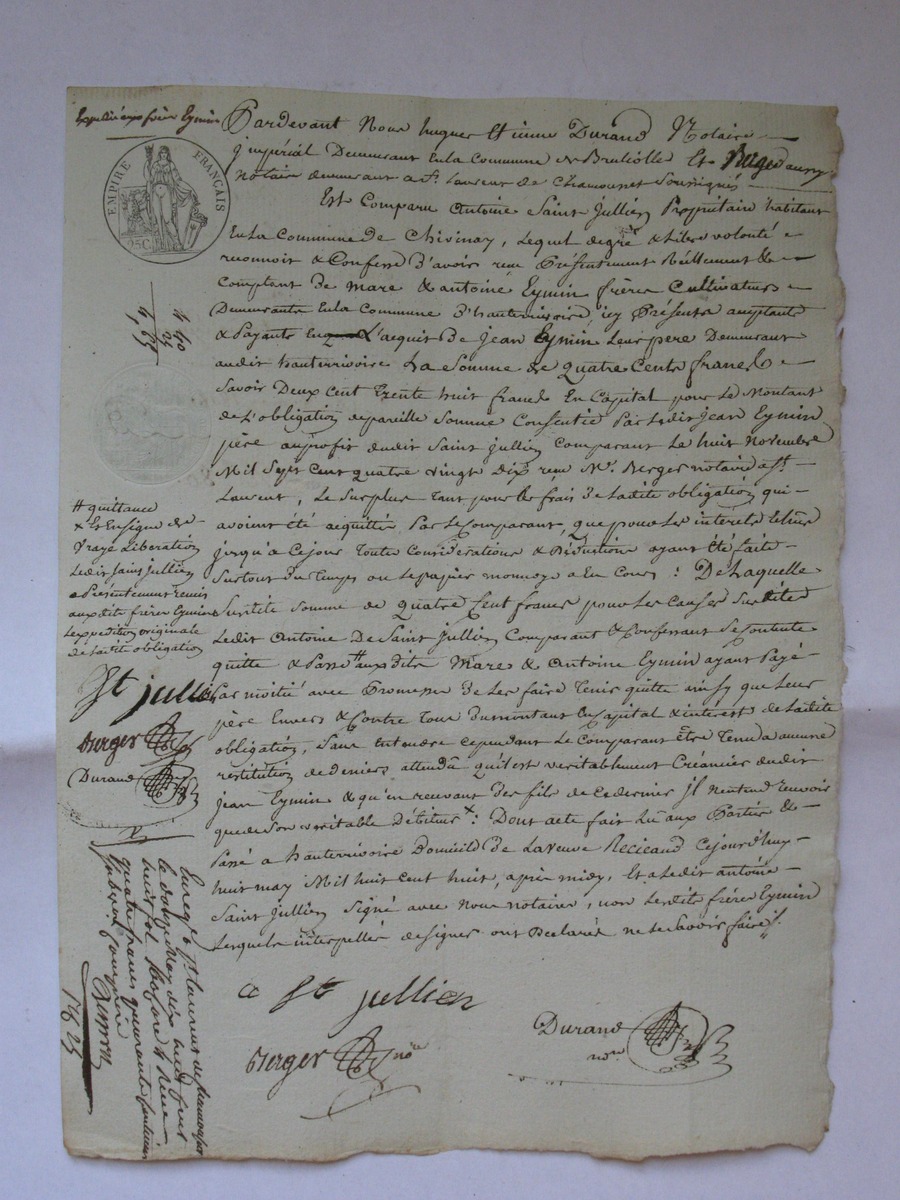 Expédié aux frères Eymin
EMPIRE FRANÇAIS
25C.
Pardevant Nous hugues Etienne Durand Notaire
jmpérial Demeurant En la Commune de Brullolle Et Berger aussy
Notaire demeurant a St. Laurent de Chamousset Soussignés
Est Comparu Antoine Saint Jullien Propriétaire habitant
En La Commune de Chivinay, Lequel de gré & Libre volonté
reconnoit & Confesse D'avoir reçu Présentement Réellement &
Comptant De Marc & antoine Eymin frères Cultivateurs
Demeurants En la Commune D'hauterivoire icy Présents acceptants
& Payants L'acquit De jean Eymin Leur père Demeurant
audit hauterrivoire La Somme De Quatre Cents francs
Savoir Deux Cent Trente huit francs En Capital pour Le Montant
de L'obligation de pareille Somme Consentie Par Ledit jean Eymin
père au profit dudit Saint Jullien Comparant Le huit Novembre
Mil Sept Cent quatre vingt Dix reçu Me. Berger notaire a St.
Laurent, Le Surplus tant pour les frais De Ladite obligation qui
avoient été acquittés Par Le Comparant, que pour Les interets Echus
jusqu'à Ce jour Toute Considérations & Réductions ayant été faite
Surtout du temps ou Le papier monnoye a Eu Cours : De Laquelle
Susdite Somme de quatre Cent francs pour Les Causes Susdites
Ledit Antoine De Saint Jullien Comparant & Confessant Se Contente
quitte & Passe # aux dits Marc & Antoine Eymin ayant Payé
Par moitié avec Promesse De Les faire Tenir quitte ainsy que Leur
père Envers & Contre Tous Du montant En Capital & interest de Ladite
obligation, Sans Entendre cependant Le Comparant être Tenu a aucune
restitution de deniers attendu qu'il est veritablement Créancier dudit
jean Eymin & qu'en recevant des fils de Ce dernier jl N'entend recevoir
que de Son veritable Débiteur x : Dont acte fait Lu aux Parties &
Passé a hauterrivoire Domicile De La veuve Cejourd'huy
huit may Mil huit Cent huit, après midy, Et a Ledit antoine
Saint Jullien Signé avec Nous notaires, non Lesdits frères Eymin
Lesquels interpellés de signer ont Declaré ne Scavoir faire ./.
a St jullien
Berger nore
Durand
nore
4 40
4, 85
# quittance
x Et En Signe de
Vraye Liberation
Ledit Saint Jullien
a Présentement remis
aux dits frères Eymin
L'expedition originale
de Ladite obligation
St jullien
Berger
Durand
Enregé a St. Laurent de Chamousset
le douze May dix huit Cent
huit
quatre francs quarante Centimes